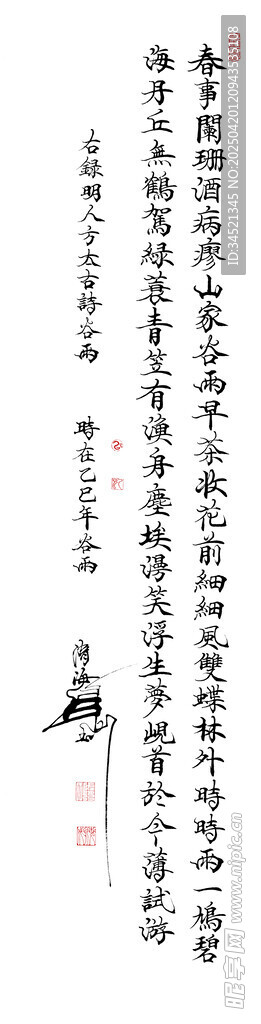 春事闌珊酒病瘳山家谷雨早茶妝花前細細風雙蝶林外時時雨一鳩碧
海丹丘無鶴駕綠蓑青笠有漁舟塵埃漫笑浮生夢峴首於今薄試游
右錄明人方太古詩谷雨
時在乙巳年谷雨
ID:34521345 NO:20250420120943535108
昵享网 www.nipic.cn